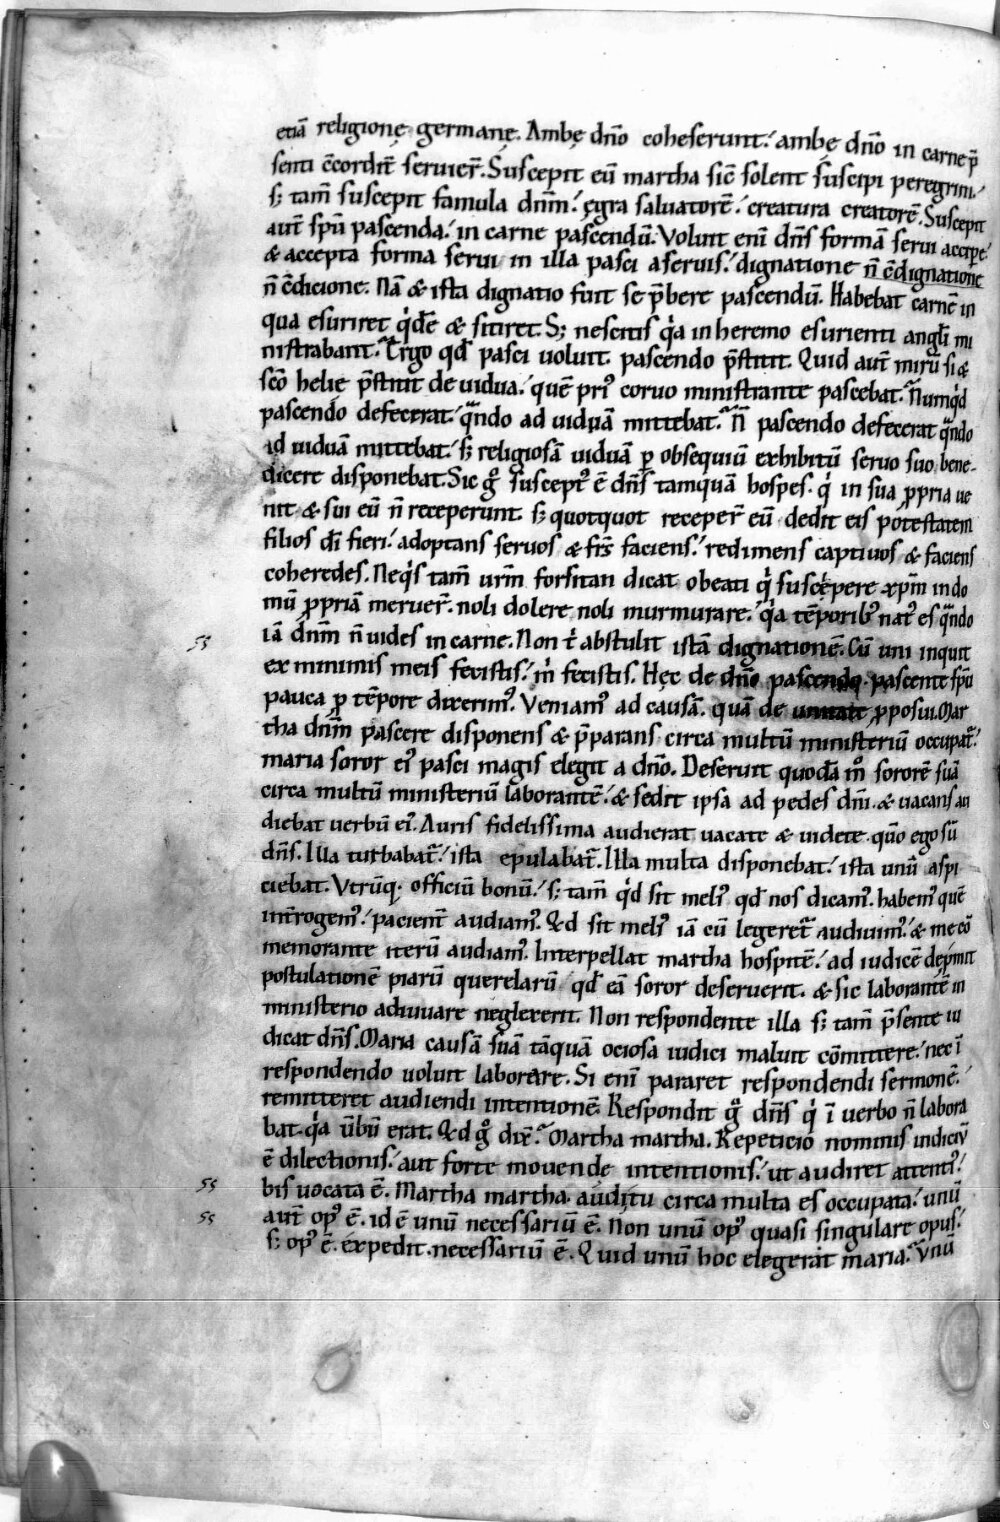 etiā religione germanę. Ambę dn̄o coheserunt.' ambę dn̄o in carne p̄
senti c̄cordit̄ seruier̄. Suscepit eū martha sic̄ solent suscipi peregrini.'
s; tam̄ suscepit famula dn̄m.' ęgra saluatorē.' creatura creatorē. Suscepit
aut̄ spū pascenda.' in carne pascendū. Voluit eni dn̄s formā serui accipe.'
& accepta forma serui in illa pasci a seruis.' dignatione n̄ c̄dignatione
n̄ c̄dicione. Nā & ista dignatio fuit se p̄bere pascendū. Habebat carnē in
qua esuriret q'dē & sitiret. S; nescitis q'a in heremo esurienti angl'i mi
nistrabant. Ergo qd' pasci uoluit. pascendo p̄stitit. Quid aut̄ mirū si &
sc̄o helię p̄stitit de uidua.' quē pri' coruo ministrante pascebat. Nunq'd
pascendo defecerat.' qn̄do ad uiduā mittebat. N̄ pascendo defecerat qn̄do
ad uiduā mittebat.' s; religiosā uiduā p obsequiū exhibitū seruo suo bene-
dicere disponebat. Sic g° suscept' ē dn̄s tamquā hospes. q' in sua ppria ue
nit & sui eū n̄ receperunt. s; quotquot receper̄ eū dedit eis potestatem
filios di fieri.' adoptans seruos & frs̄ faciens.' redimens captiuos & faciens
coheredes. Neq's tam̄ urm̄ forsitan dicat o beati q' suscępere xpm̄ in do
mū ppriā meruer̄. noli dolere noli murmurare.' q'a tēporib' nat' es qn̄do
iā dn̄m n̄ uides in carne. Non t' abstulit istā dignationē. Cū uni inquit
ex minimis meis fecistis.' m' fecistis. Hęc de dn̄o pascendo. pascente spū
pauca p tēpore dixerim'. Veniam' ad causā. quā de unitate pposui. Mar
tha dn̄m pascere disponens & p̄parans circa multū ministeriū occupat̄.'
maria soror ei' pasci magis elegit a dn̄o. Deseruit quodā m° sororē suā
circa multū ministeriū laborantē.' & sedit ipsa ad pedes dn̄i. & uacans au
diebat uerbū ei'. Auris fidelissima audierat uacate & uidete. qm̄o ego sū
dn̄s. Illa turbabat̄.' ista epulabat̄. Illa multa disponebat.' ista unū aspi
ciebat. Vtrūq. officiū bonū.' s; tam̄ q'd sit meli' qd' nos dicam'. habem' quē
int̄rogem'.' pacient̄ audiam'. Qd sit meli' iā cū legeret̄ audiuim'.' & me cō
memorante iterū audiam'. Interpellat martha hospitē.' ad iudicē dep'mit
postulationē piarū querelarū qd' eā soror deseruerit. & sic laborantē in
ministerio adiuuare neglexerit. Non respondente illa s; tam̄ p̄sente iu
dicat dn̄s. Maria causā suā tāquā ociosa iudici maluit cōmittere.' nec ī
respondendo uoluit laborare. Si eni pararet respondendi sermonē.'
remitteret audiendi intentionē. Respondit g° dn̄s q' ī uerbo n̄ labora
bat. q'a ūbū erat. Qd g° dix̄. Martha martha. Repeticio nominis indiciū
ē dilectionis.' aut forte mouende intentionis.' ut audiret attenti'.'
bis uocata ē. Martha martha. auditu circa multa es occupata.' unū
aut̄ op' ē. id ē unū necessariū ē. Non unū op' quasi singulare opus.'
s; op' ē. expedit. necessariū ē. Quid unū hoc elegerat maria. Vnū
55
55
55